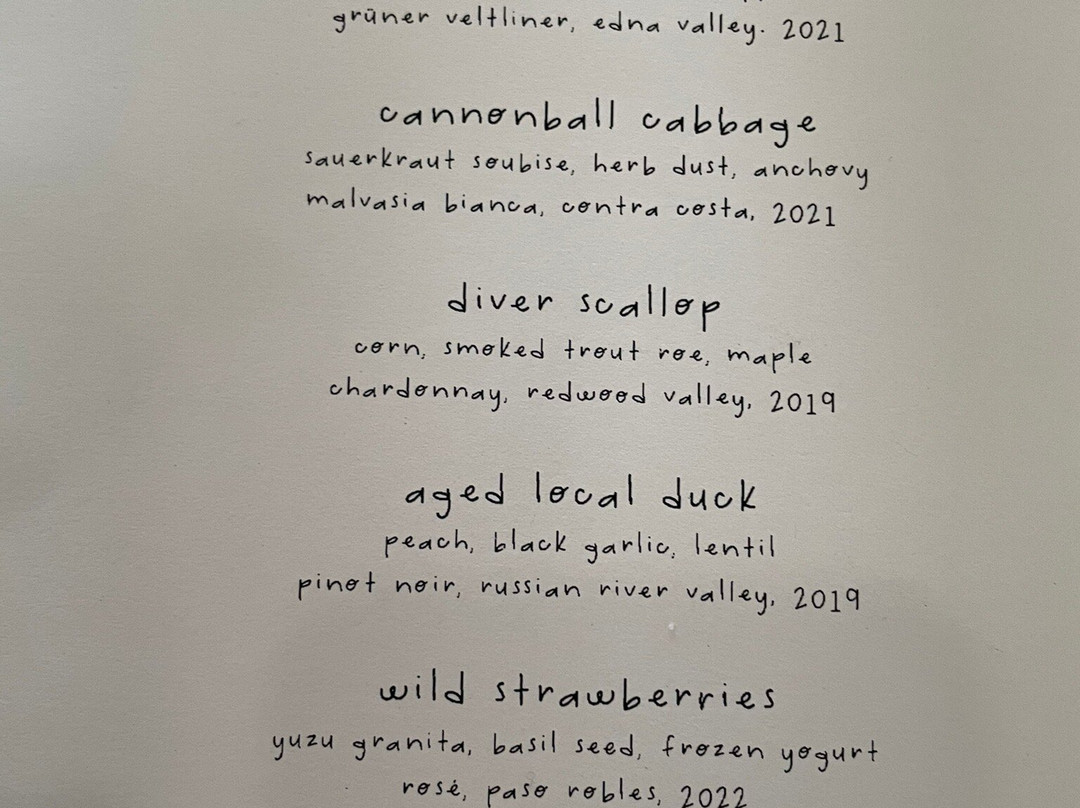 grüner veltliner, edna valley. 2021
cannonball cabbage
sauerkraut soubise, herb dust, anchovy
malvasia bianca, contra costa, 2021
diver scallop
corn, smoked trout roe, maple
chardonnay, redwood valley, 2019
aged local duck
peach, black garlic, lentil
pinot noir, russian river valley, 2019
wild strawberries
yuzu granita, basil seed, frozen yogurt
rosé, paso robles, 2022